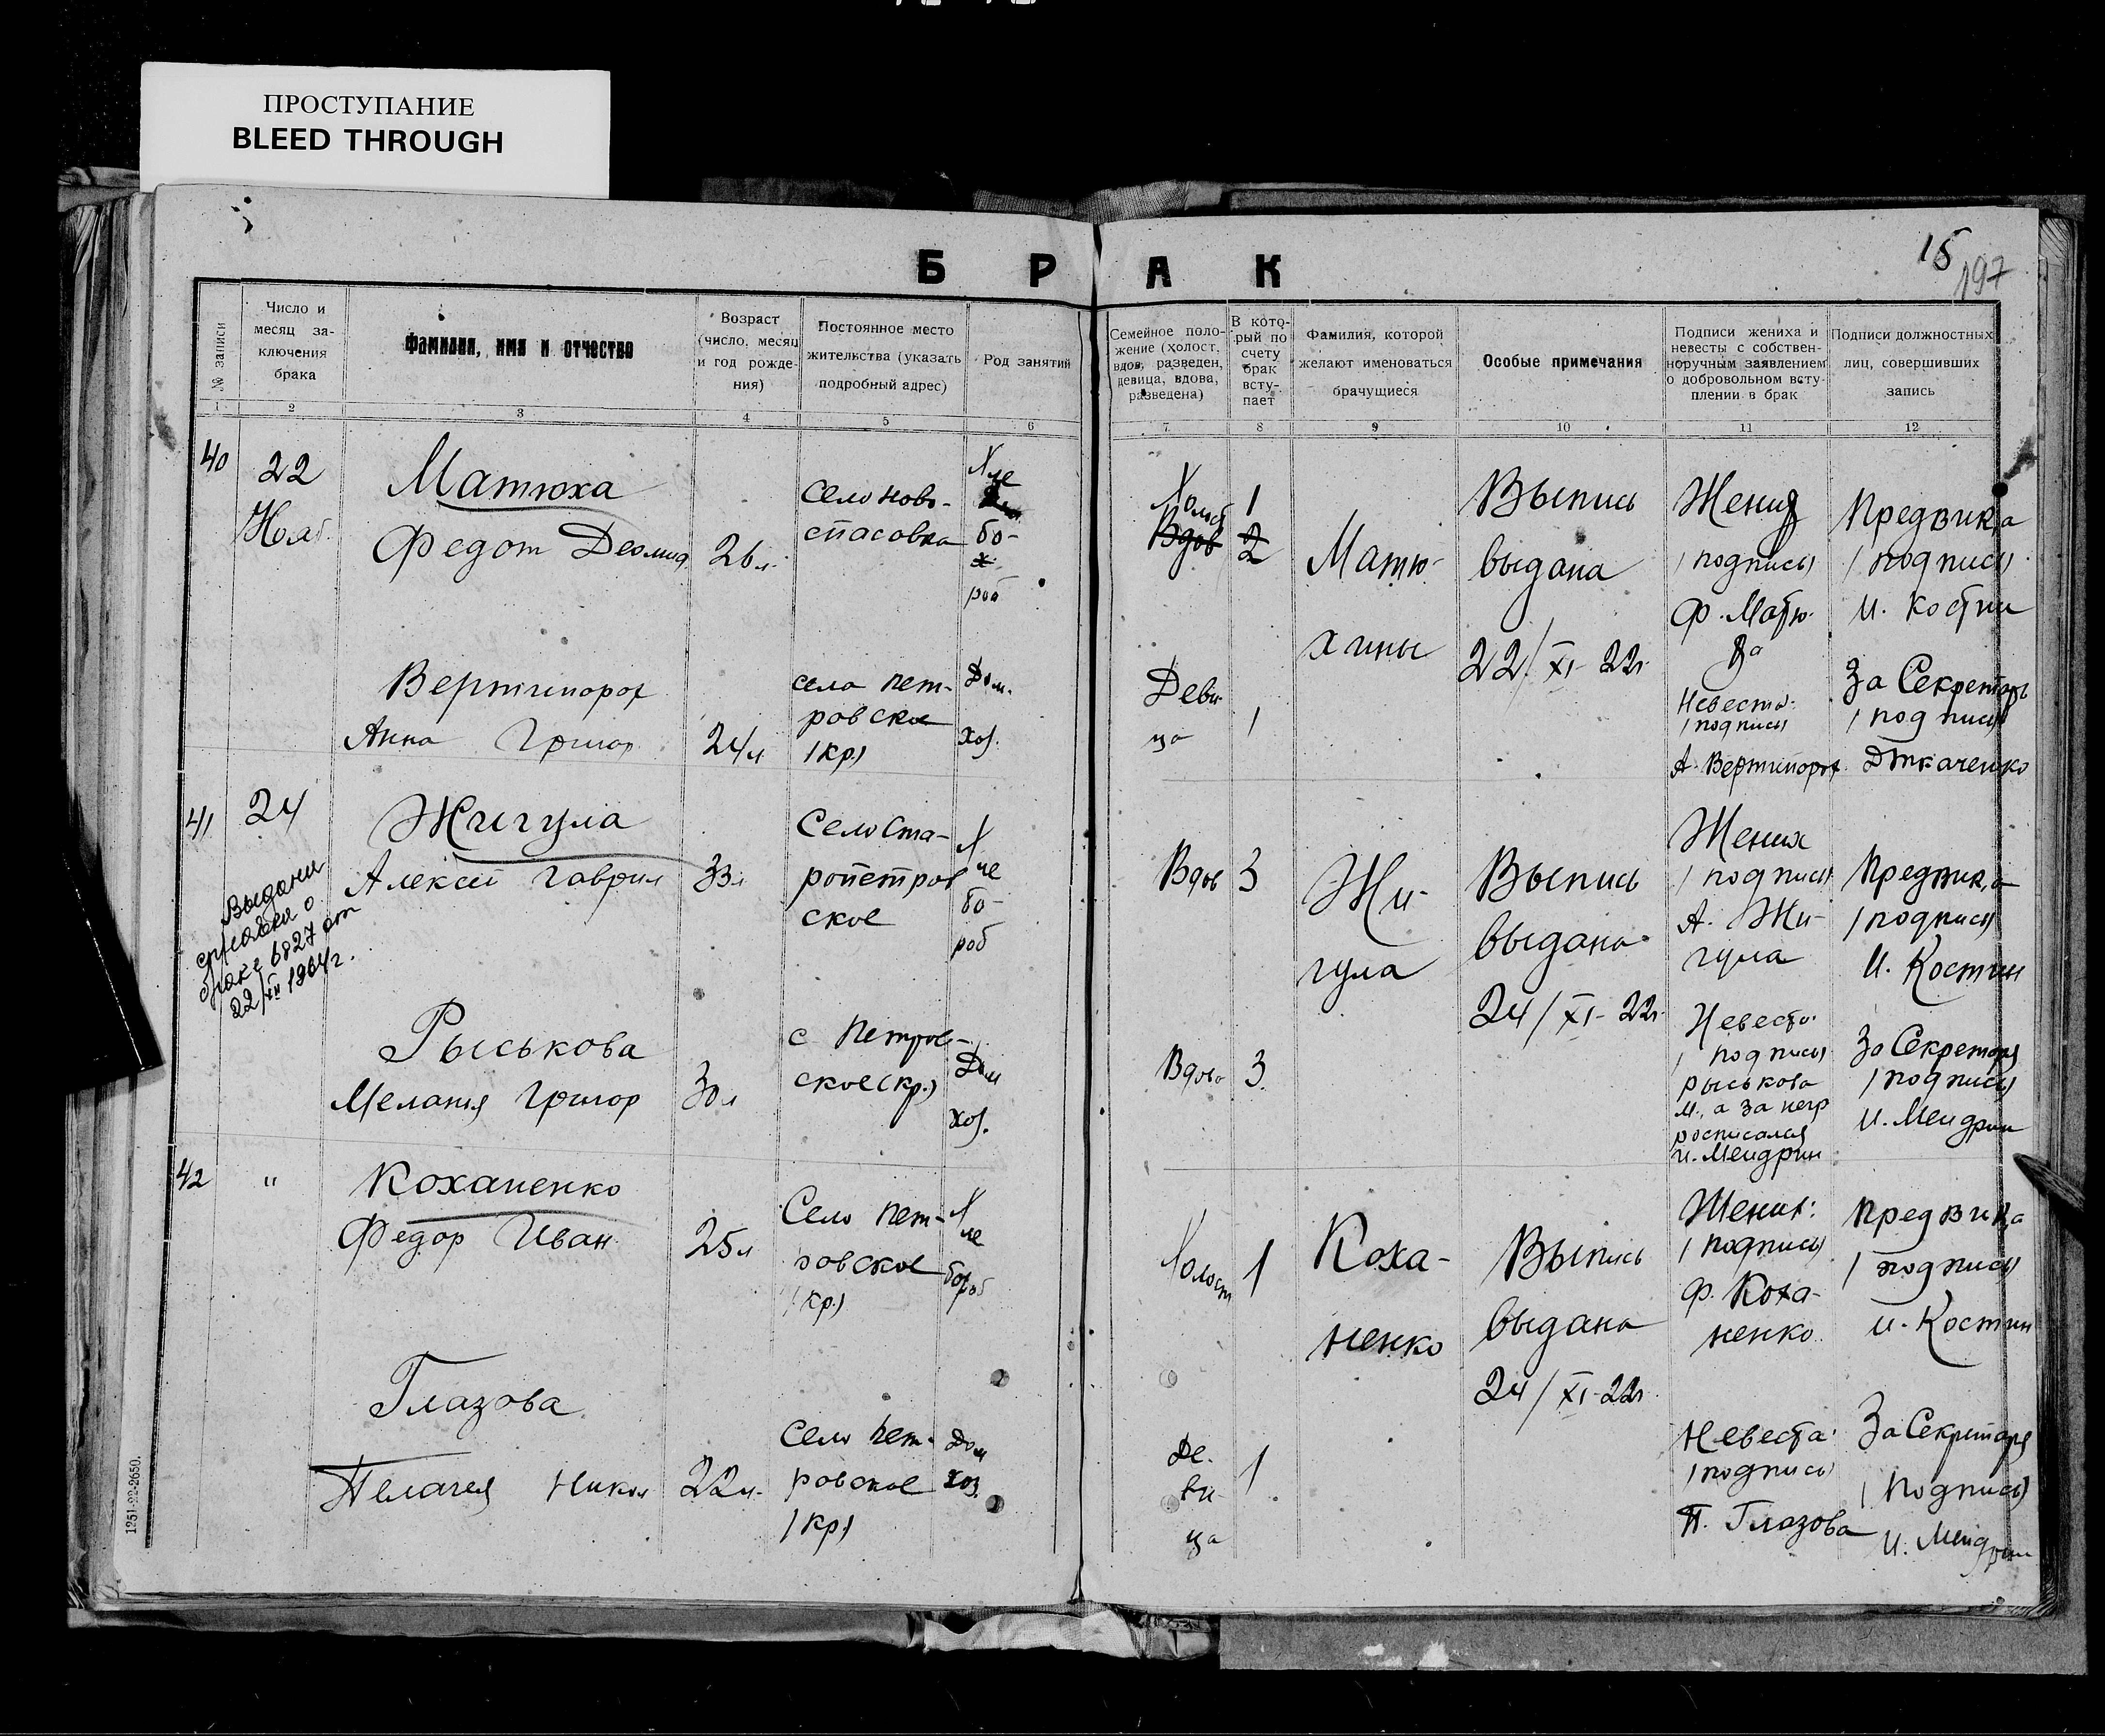 ПРОСТУПАНИЕ
BLEED THROUGH
Б Р А К
15
197
№ записи
Число и
месяц за-
ключения
брака
Фамилия, имя и отчество
Возраст
(число, месяц
и год рожде-
ния)
Постоянное место
жительства (указать
подробный адрес)
Род занятий
Семейное поло-
жение (холост,
вдов, разведен,
девица, вдова,
разведена)
В кото-
рый по
счету
брак
всту-
пает
Фамилия, которой
желают именоваться
брачущиеся
Особые примечания
Подписи жениха и
невесты с собствен-
норучным заявлением
о добровольном всту-
плении в брак
Подписи должностных
лиц, совершивших
запись
1 2 3 4 5 6 7 8 9 10 11 12
40
22
Нояб.
Матюха
Федот Деомид
26 л.
Село Ново-
спасовка
Хле
бо-
роб
Холост
Вдов
1
2
Матю-
хины
Выпись
выдана
22/XI-22г.
Жених
/подпись/
Ф. Матю-
ха
Предвика
/подпись/
И. Костин
Вертипорох
Анна Григор
24 л
село Пет-
ровское
/кр./
Дом.
хоз.
Деви
ца
1
Невеста:
/подпись/
А. Вертипорох
За Секретарь
/подпись/
Д Ткаченко
41
24
Жигула
Алексей Гаврил
33 л
Село Ста-
ропетров
ское
Х
ле
бо-
роб
Вдов
3
Жи-
гула
Выпись
выдана
24/XI-22г.
Жених
/подпись/
А. Жи-
гула
Предвик,а
/подпись/
И. Костин
Выдана
справка о
браке 6827 от
22/III 1964г.
Рыськова
Мелания Григор
30 л
с Петров-
ское (кр.)
Дом
хоз.
Вдова
3.
Невеста:
/подпись/
Рыськова
М., а за негр
росписался
И. Мендрин
За Секретаря
/подпись/
И. Мендрин
42
"
Коханенко
Федор Иван
25 л
Село Пет-
ровское
/кр./
Х
ле
бороб
Холост
1
Коха-
ненко
Выпись
выдана
24/XI-22г.
Жених:
/подпись/
Ф. Коха-
ненко.
Предвика
/подпись/
И. Костин
Глазова
Пелагея Никол
22 л.
Село Пет-
ровское
/кр/
Дом
хоз.
Де-
ви-
ца
1
Невеста:
/подпись/
П. Глазова
За Секретаря
/подпись/
И. Мендрин
1251-22-2650.